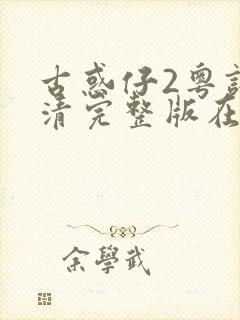 古惑仔2粤
清完整版在
余學武